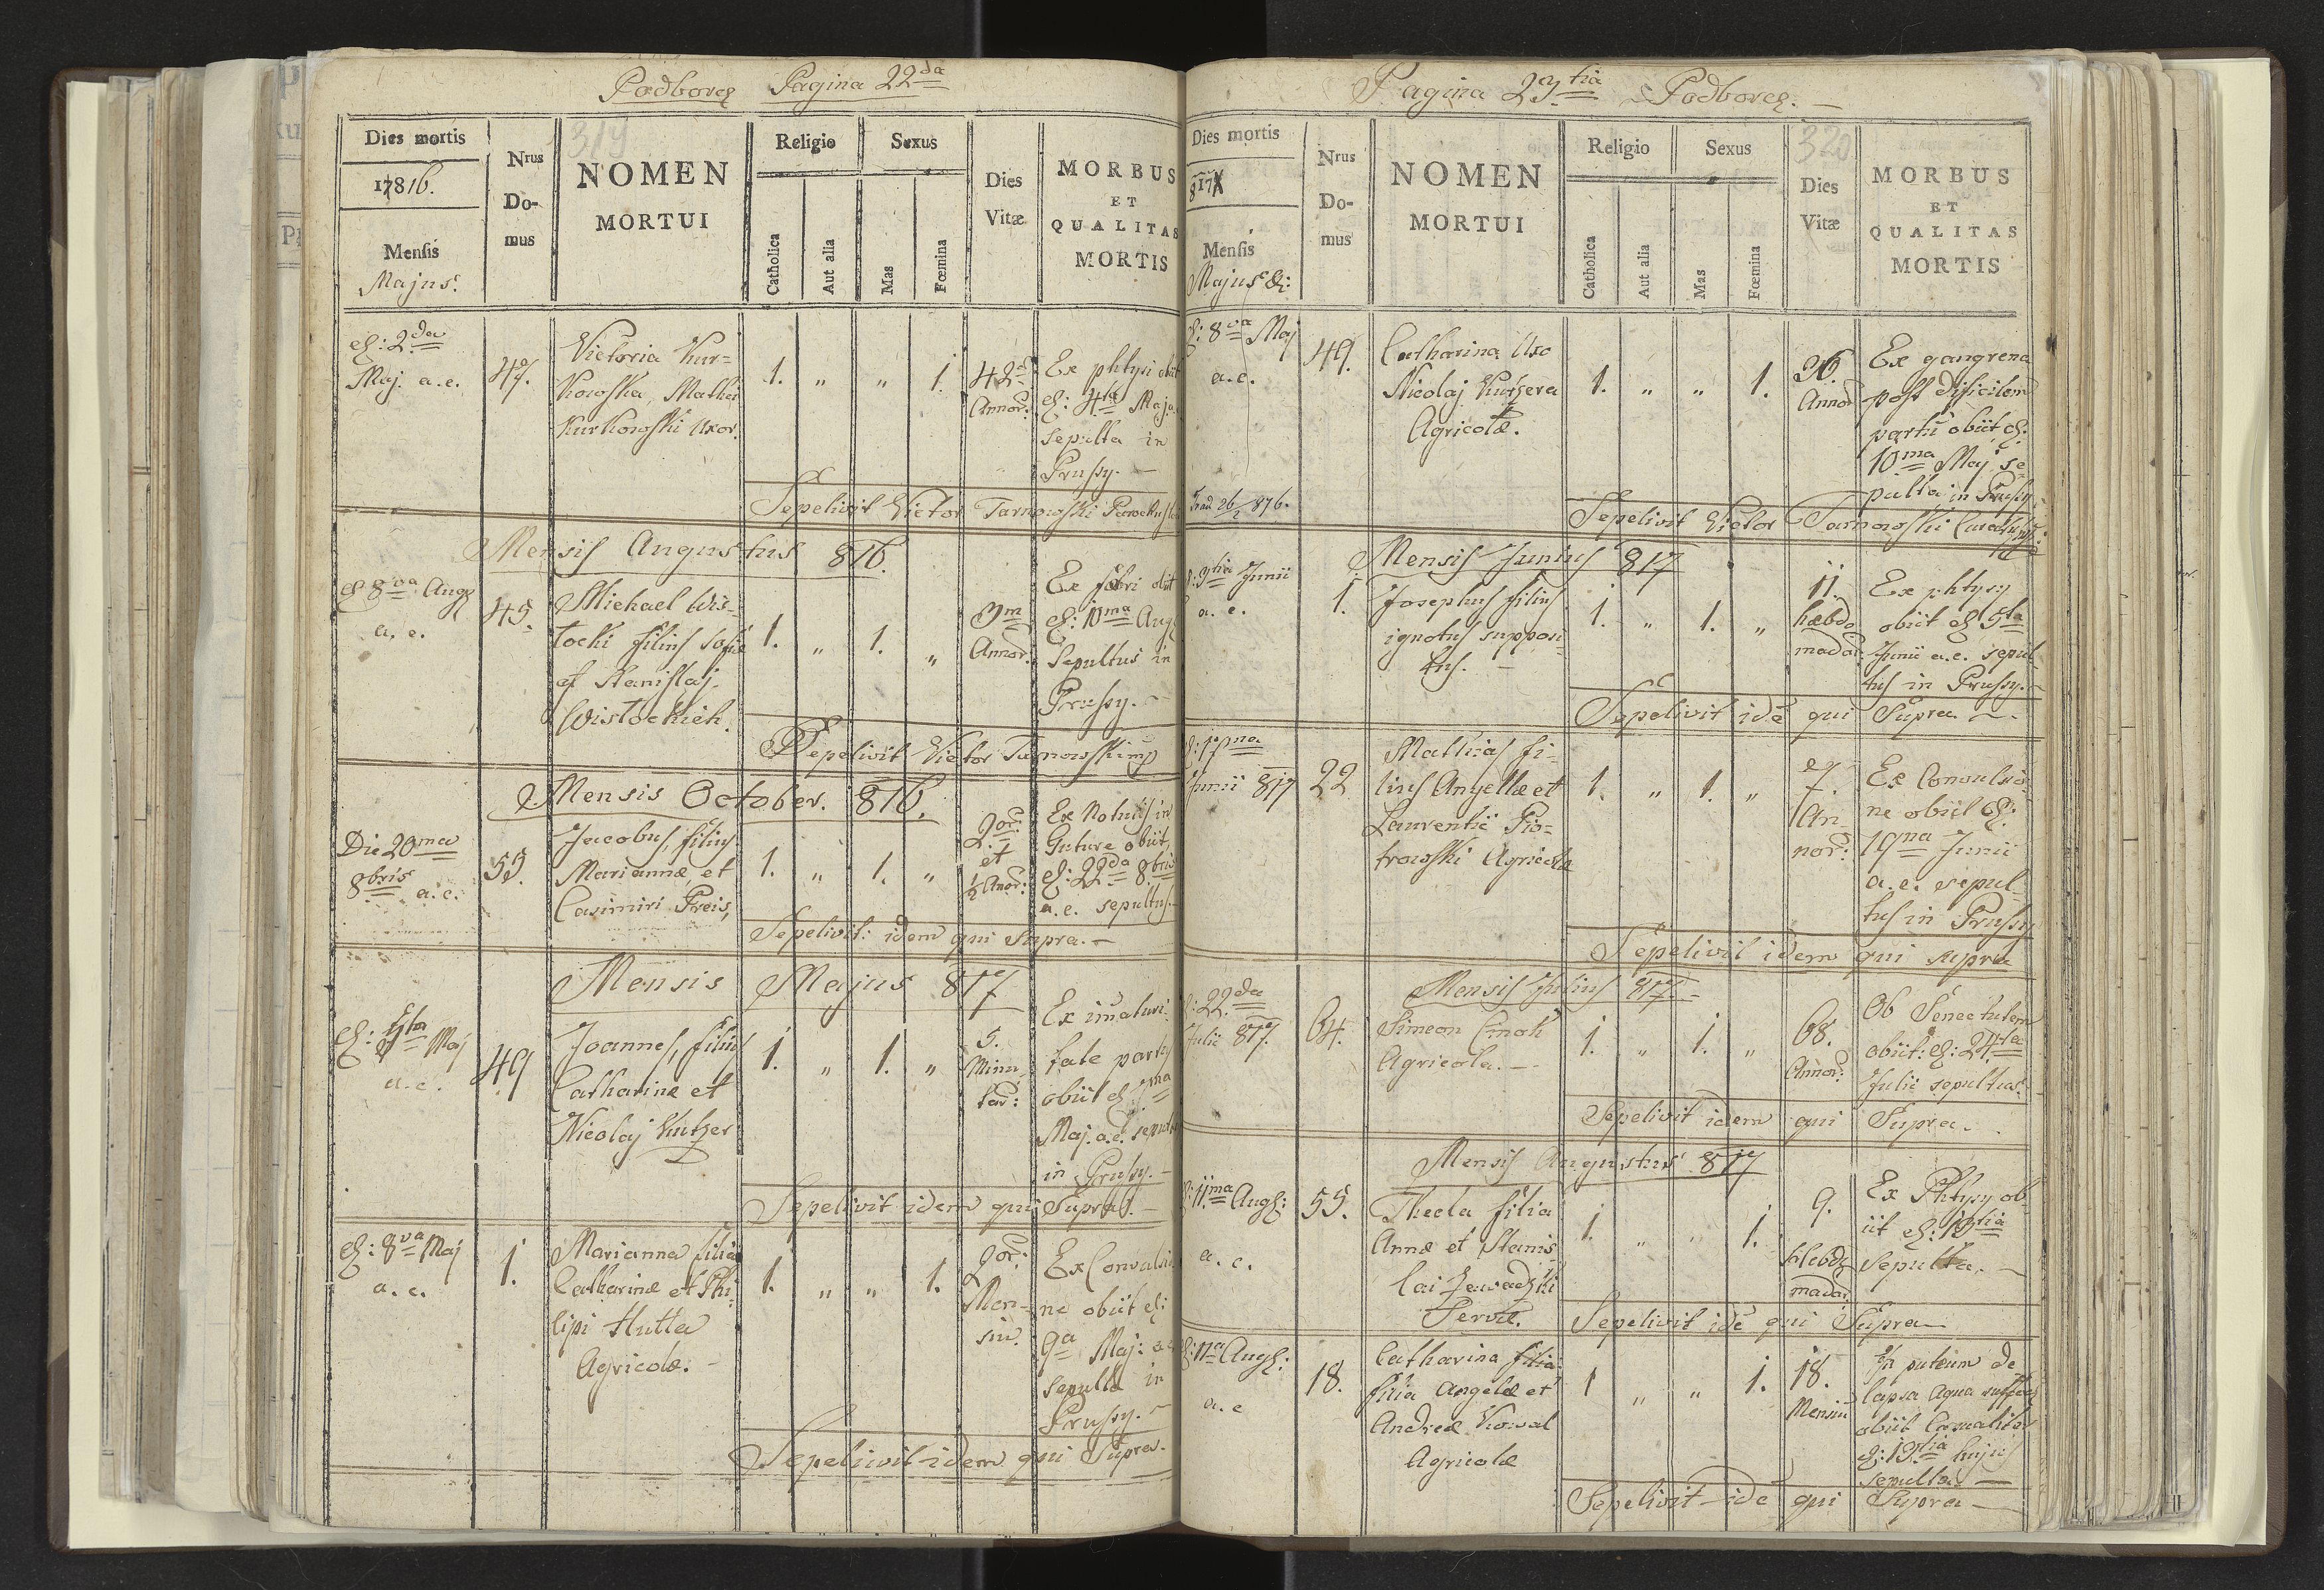 Podborcz Pagina 22da
319
Dies mortis
17816.
Mensis
Majus.
Nrus
Do-
mus
NOMEN
MORTUI
Religio
Catholica
Aut alia
Sexus
Mas
Fœmina
Dies
Vitæ
MORBUS
ET
QUALITAS
MORTIS
d: 2da
Maj. a.c.
47.
Victoria Kur=
kowska, Mathei
Kurkowski Uxor.
1. " " 1.
42d
Annor:
Ex phtysi obiit
d: 4ta Maj a
sepulta in
Prussy. —
Sepelivit Victor Tarnowski
Mensis Augustus 816.
d 8va Aug
a. c.
45.
Michael Wis-
tocki filius Sofiæ
et Stanislaj
Wistockich.
1. " 1. "
3m
Annor.
Ex febri obiit
d: 10ma Aug
Sepultus in
Prussy. —
Sepelivit Victor Tarnowski mp
Mensis October. 816.
Die 20ma
8bris a.c.
55.
Jacobus, filius
Mariannæ, et
Casimiri Preis,
1. " 1. "
2or.
et
1/2 Anor:
Ex in
Guture obiit,
d: 22da 8bris
a.c. sepultus.—
Sepelivit: idem qui supra. —
Mensis Majus 817
d: 5ta Maj
a.c.
49
Joannes, filius
Catharinæ et
Nicolaj Kutzer
1. " 1. "
5.
Minu-
tar:
Ex imaturi-
tate partus
obiit d 7ma
Maj. a.c. sepultus
in Prussy. —
Sepelivit idem qui Supra. —
d: 8va Maj
a. c.
1.
Marianna filia
Catharinæ et Phi-
lipi Hutta
Agricolæ. —
1. " " 1.
2or:
Men-
siu.
Ex Convulsio
ne obiit d:
9a Maj: a c
sepulta in
Prussy. —
Sepelivit idem qui Supra.
Pagina 23tia Podborcz. —
320
Dies mortis
817
Mensis
Majus &:
Nrus
Do-
mus
NOMEN
MORTUI
Religio
Catholica
Aut alia
Sexus
Mas
Fœmina
Dies
Vitæ
MORBUS
ET
QUALITAS
MORTIS
d: 8va Maj
a.c.
49.
Catharina Uxo
Nicolaj Kutzera
Agricolæ.
1. " " 1.
26.
Annor
Ex gangrena
post dificilem
partu obiit d:
10ma Maj se-
pulta in Prussy.
Sepelivit Victor Tarnowski
Mensis Junius 817
d: 3tia Junii
a. c.
1.
Josephus filius
ignotus supposi
tus. —
1. " 1. "
11.
hæbdo
madar:
Ex phtysy
obiit d 5ta
Junii a.c. sepul
tus in Prussy.—
Sepelivit idē qui Supra —
d: 17ma
Junii 817
22
Mathias fi-
lius Angellæ et
Laurentii Pio-
trowski Agricolæ
1. " 1. "
7.
An-
nor:
Ex Convulsio
ne obiit d:
19na Junii
a.c. sepul-
tus in Prussy
Sepelivit idem qui supra
Mensis Julius 817. —
d: 22da
Julii 817.
64.
Simeon Cmok
Agricola. —
1. " 1. "
68.
Annor:
Ob Senectutem
obiit: d: 24ta
Julii sepultus.
Sepelivit idem qui Supra.
Mensis Augustus 817
d: 11ma Aug:
a. c.
55.
Thecla filia
Annæ et Stanis
lai Zawadzki
Servæ.
1. " " 1.
9.
Hebdo
madar:
Ex Phtysy ob
iit d: 13tia
Sepulta. —
Sepelivit idē qui Supra —
Aug:
a. c
18.
Catharina filia
filia Angelæ et
Andreæ Kowal
Agricolæ
1 " " 1.
18.
Mensiu
In puteum de
lapsa Aqua
obiit Casualiter
d: 13tia hujus
Sepulta. —
Sepelivit idē qui Supra —